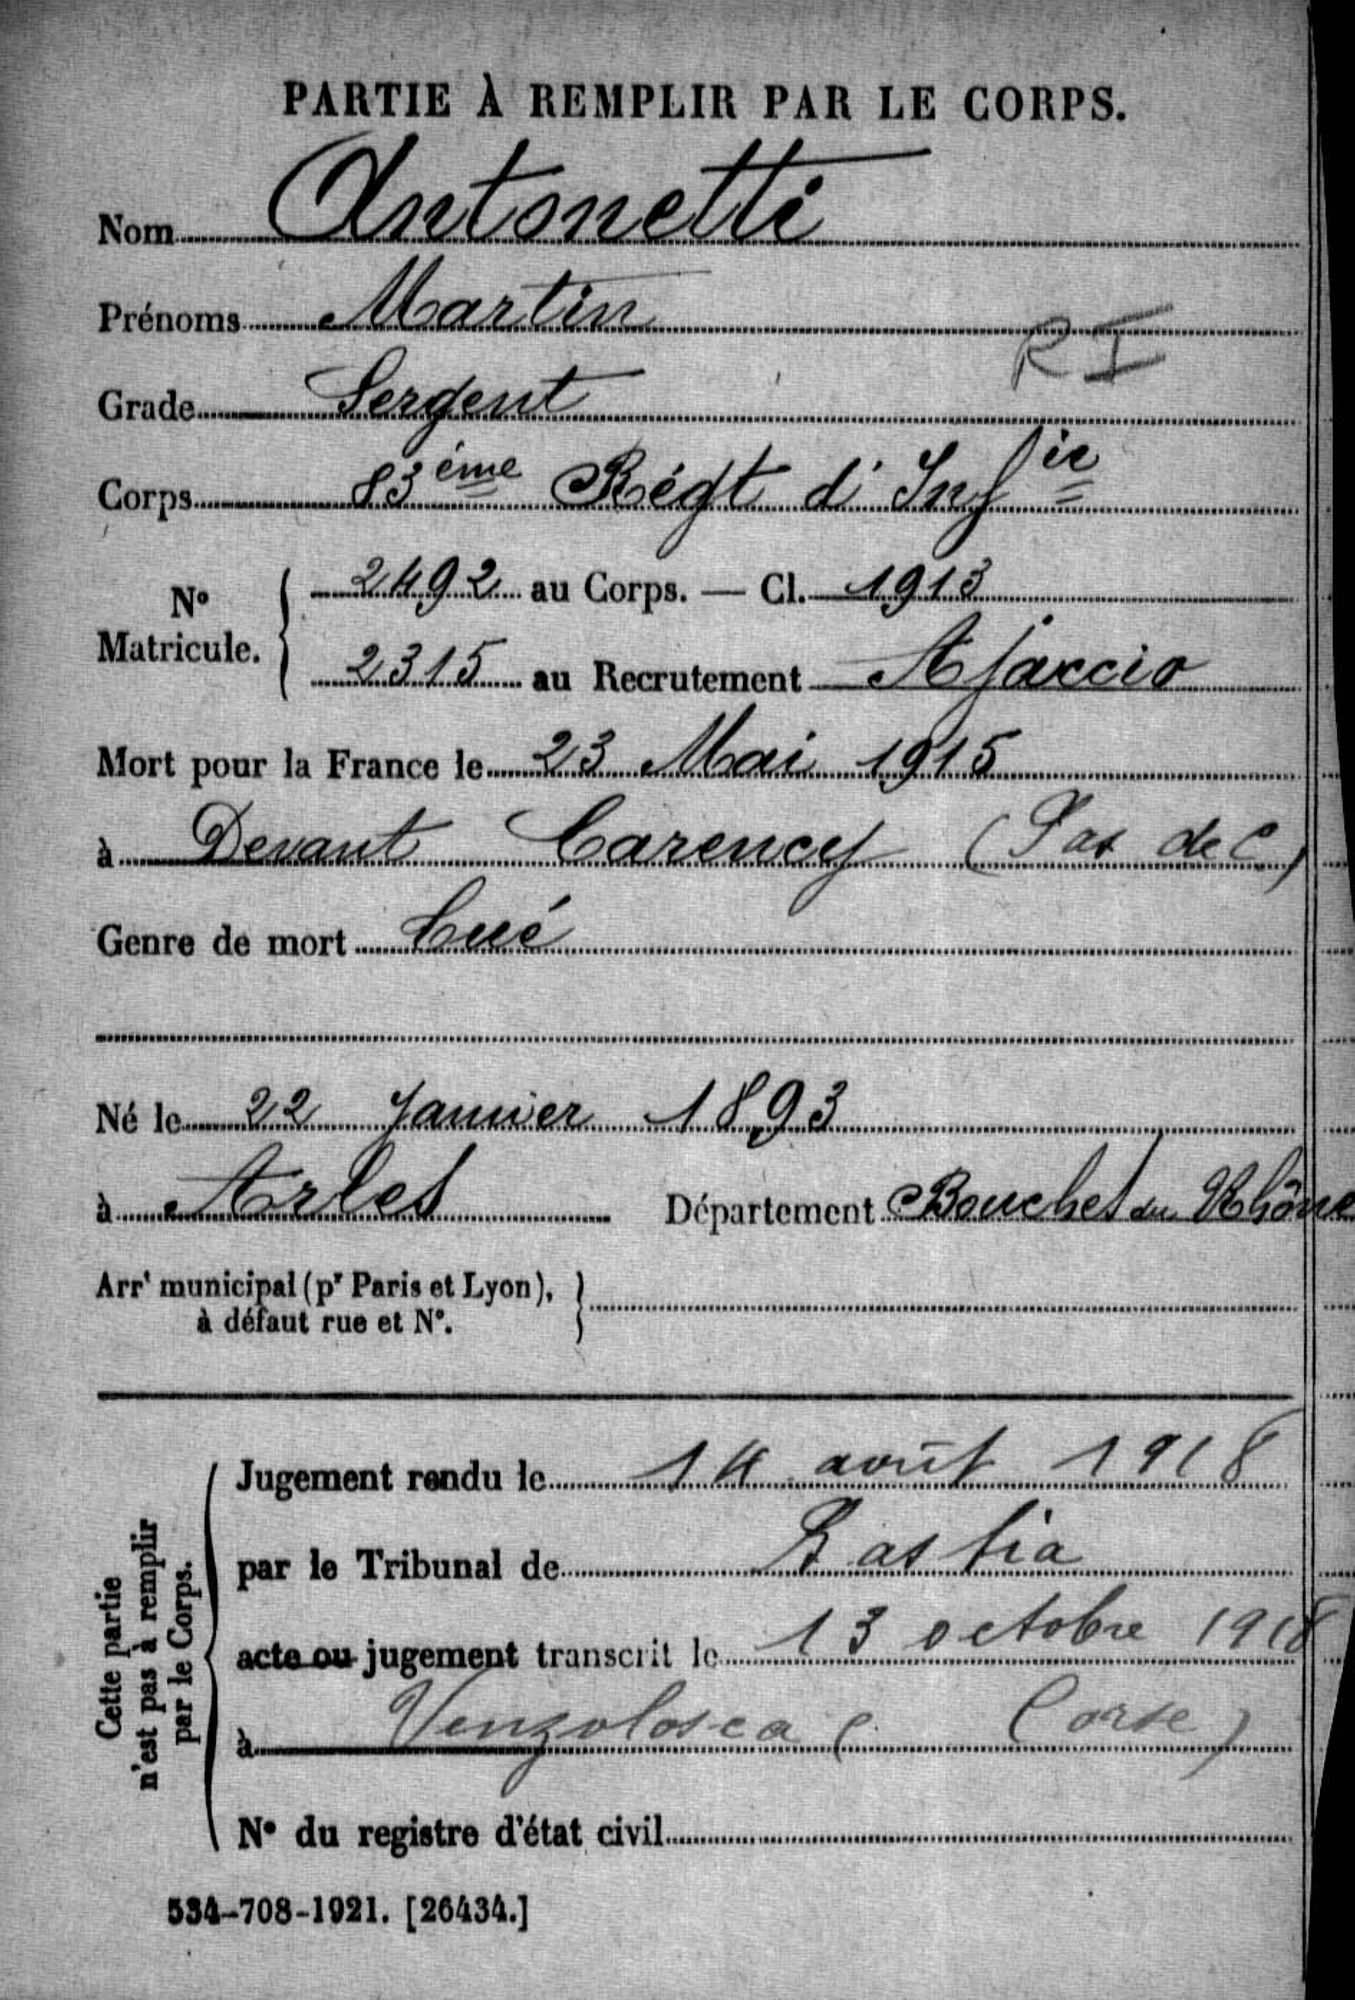 PARTIE À REMPLIR PAR LE CORPS.
Nom Antonetti
Prénoms Martin
R I
Grade Sergent
Corps 83ème Régt d'Infie
N° Matricule. { 2492 au Corps. — Cl. 1913
2315 au Recrutement Ajaccio
Mort pour la France le 23 Mai 1915
à Devant Carency (Pas de C)
Genre de mort Tué
Né le 22 Janvier 1893
à Arles Département Bouches du Rhône
Arrt municipal (pr Paris et Lyon),
à défaut rue et N°.
Cette partie
n'est pas à remplir
par le Corps.
Jugement rendu le 14 août 1918
par le Tribunal de Bastia
acte ou jugement transcrit le 13 octobre 1918
à Venzolosca (Corse)
N° du registre d'état civil
534-708-1921. [26434.]